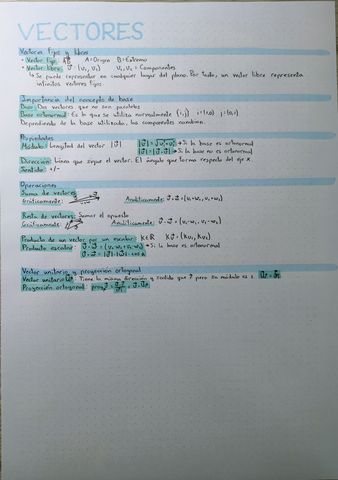 VECTORES
Vectores fijos y libres
• Vector fijo: AB A=Origen B=Extremo
• Vector libre: v = (v₁, v₂) v₁, v₂ = Componentes
↳ Se puede representar en cualquier lugar del plano. Por tanto, un vector libre representa
infinitos vectores fijos.
Importancia del concepto de base
Base: Dos vectores que no son paralelos
Base ortonormal: Es la que se utiliza normalmente (i, j) i=(1,0) j=(0,1)
Dependiendo de la base utilizada, las componentes cambian.
Propiedades
Módulo: Longitud del vector |v| → Si la base es ortonormal
→ Si la base no es ortonormal
Dirección: Línea que sigue el vector. El ángulo que forma respecto del eje x
Sentido: +/-
Operaciones
Suma de vectores:
Gráficamente: Analíticamente:
Resta de vectores: Sumar el opuesto
Gráficamente: Analíticamente:
Producto de un vector por un escalar: K∈ℝ Kv = (Kv₁, Kv₂)
Producto escalar: → Si la base es ortonormal
Vector unitario y proyección ortogonal
Vector unitario: Tiene la misma dirección y sentido que v pero su módulo es 1.
Proyección ortogonal: